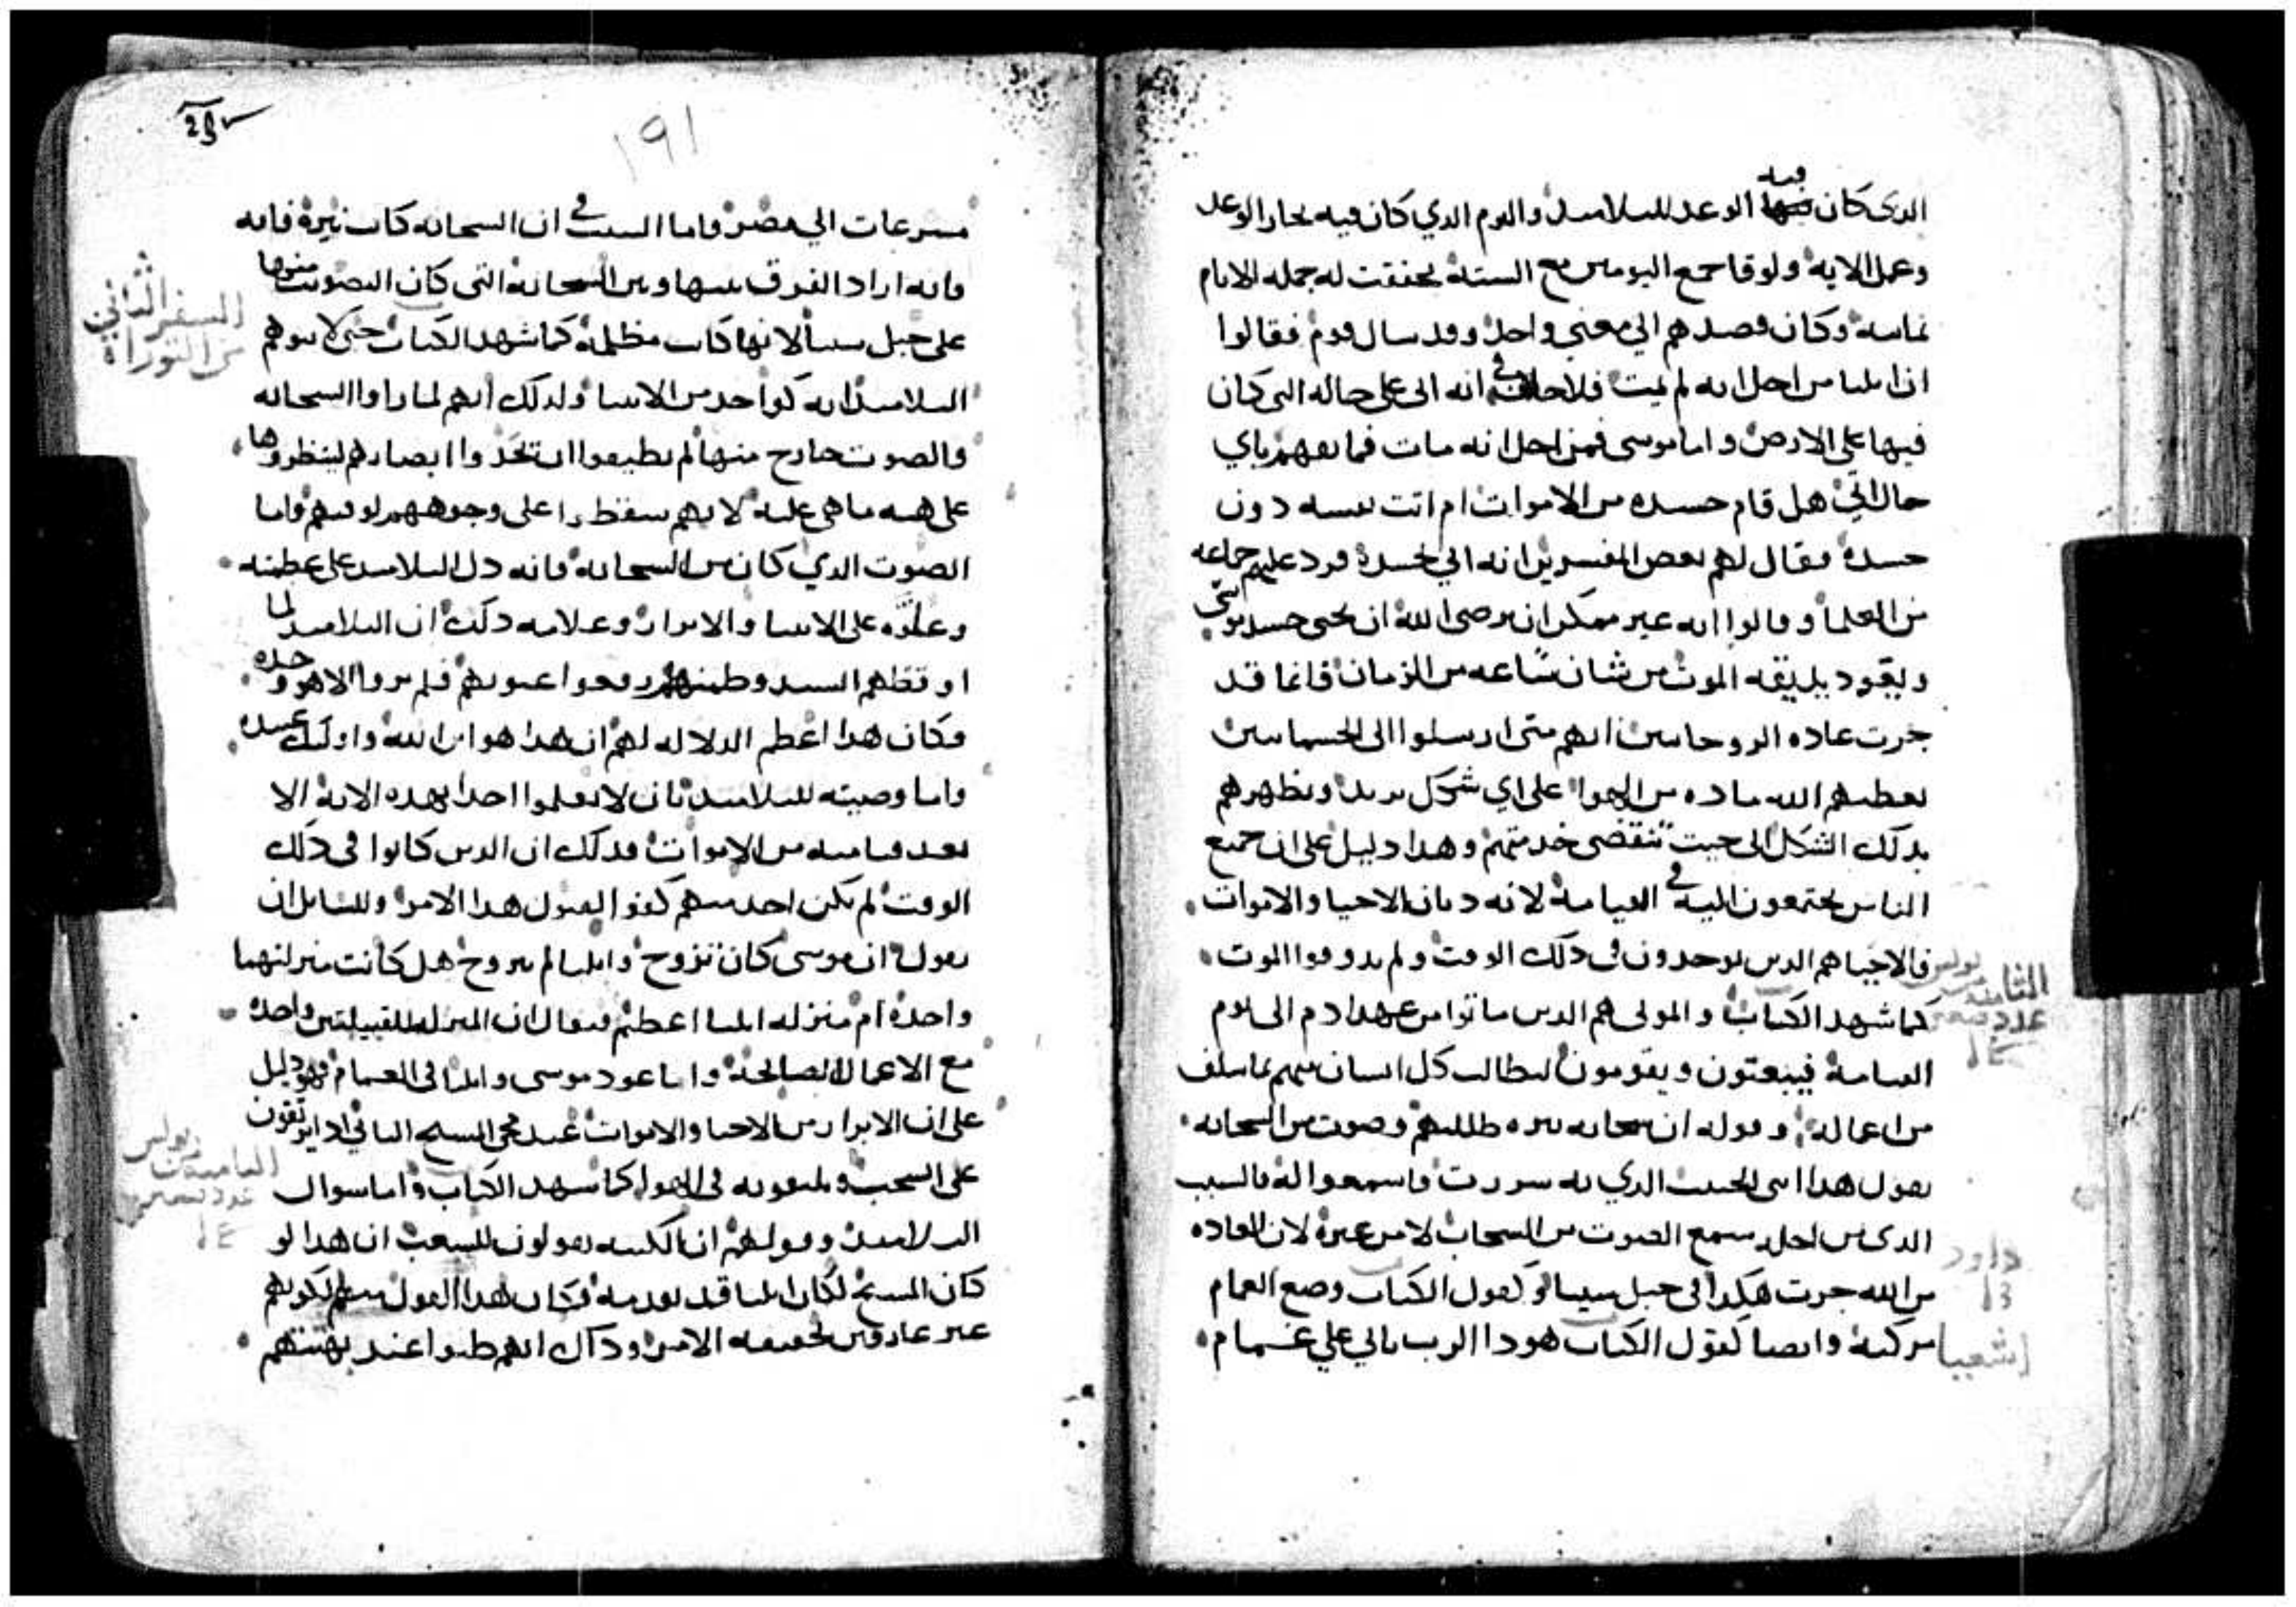 الدى كان فيه الوعد للتلاميذ واليوم الذي كان فيه نجاز الوعد
وعمل الايه ولوقا جمع اليومين مع الستة تحققت له جمله الايام
ثمانيه وكان قصدهم الي معني واحد وقد سال قوم فقالوا
ان ايليا من اجل انه لم يمت فلا خلاف في انه اتى على حاله التى كان
فيها على الارض واما موسى فمن اجل انه مات فما نفهم باي
حال اتي هل قام جسده من الاموات ام اتت نفسه دون
جسده فقال لهم بعض المفسرين انه اتي بجسده فرد عليهم جماعه
من العلما وقالوا انه غير ممكن ان يرضى الله ان يحيى جسد موسي
ويعود يذيقه الموت من شان ساعه من الزمان فانما قد
جرت عاده الروحانيين انهم متى ارسلوا الى الجسمانيين
يعطيهم الله ماده من الهوا على اي شكل يريد ويظهرهم
بذلك الشكل الى حيت تنقضى خدمتهم وهدا دليل على ان جميع
الناس يجتمعون اليه في القيامة لانه ديان الاحيا والاموات
فالاحيا هم الدين يوجدون فى دلك الوقت ولم يدوقوا الموت
كما شهد الكتاب والموتى هم الدين ماتوا من عهد ادم الى يوم
القيامة فيبعتون ويقومون ليطالب كل انسان منهم بما سلف
من اعماله وقوله ان سحابه نيره ظللتهم وصوت من السحابه
يقول هدا ابنى الحبيب الدي به سررت فاسمعوا له فالسبب
الدى من اجله سمع الصوت من السحاب لا من غيره لان العاده
من الله جرت هكدا فى جبل سينا وكقول الكتاب وضع الغمام
مركبه وايضا كقول الكتاب هودا الرب ياتي علي غمام
بولس
الثامنه
عدد
داود
اشعيا
191
مسرعات الي مصر واما السبب في ان السحابه كانت نيرة فانه
فانه اراد الفرق بينها وبين السحابه التى كان الصوت منها
على جبل سينا لانها كانت مظلمة كما شهد الكتاب حتى لا يتوهم
التلاميذ انه كواحد من الانبيا ولدلك انهم لما راوا السحابه
والصوت خارج منها لم يطيقوا ان يتخدوا ابصارهم لينظروها
على هيه ما هى عليه لانهم سقطوا على وجوههم لوقتهم واما
الصوت الدي كان من السحابه فانه دل التلاميذ على عظمته
وعلوه على الانبيا والابرار وعلامه دلك ان التلاميذ لما
اوقظهم السيد وطمنهم رفعوا عيونهم فلم يروا الا هو وحده
فكان هدا اعظم الدلاله لهم ان هدا هو ابن الله واولئك عبيده
واما وصيته للتلاميذ بان لا يعلموا احدا بهده الايه الا
بعد قيامته من الاموات فدلك ان الدين كانوا فى دلك
الوقت لم يكن احد منهم كفوا لقبول هدا الامر وللسايل ان
يقول ان موسى كان تزوج وايليا لم يتزوج هل كانت منزلتهما
واحدة ام منزله ايليا اعظم فيقال ان المنزله للقبيلتين واحده
مع الاعمال الصالحة واما عود موسى وايليا فى الغمام فهو دليل
على ان الابرار من الاحيا والاموات عند مجى المسيح التاني يرتقون
على السحب ويلتقونه فى الهوا كما شهد الكتاب واما سوال
التلاميذ وقولهم ان الكتبه يقولون للشعب ان هدا لو
كان المسيح لكان ايليا قد تقدمه فكان هدا القول منهم لكونهم
غير عارفين بحقيقه الامر وداك انهم ظنوا عند
السفر الثاني
من التوراة
بولس
عدد